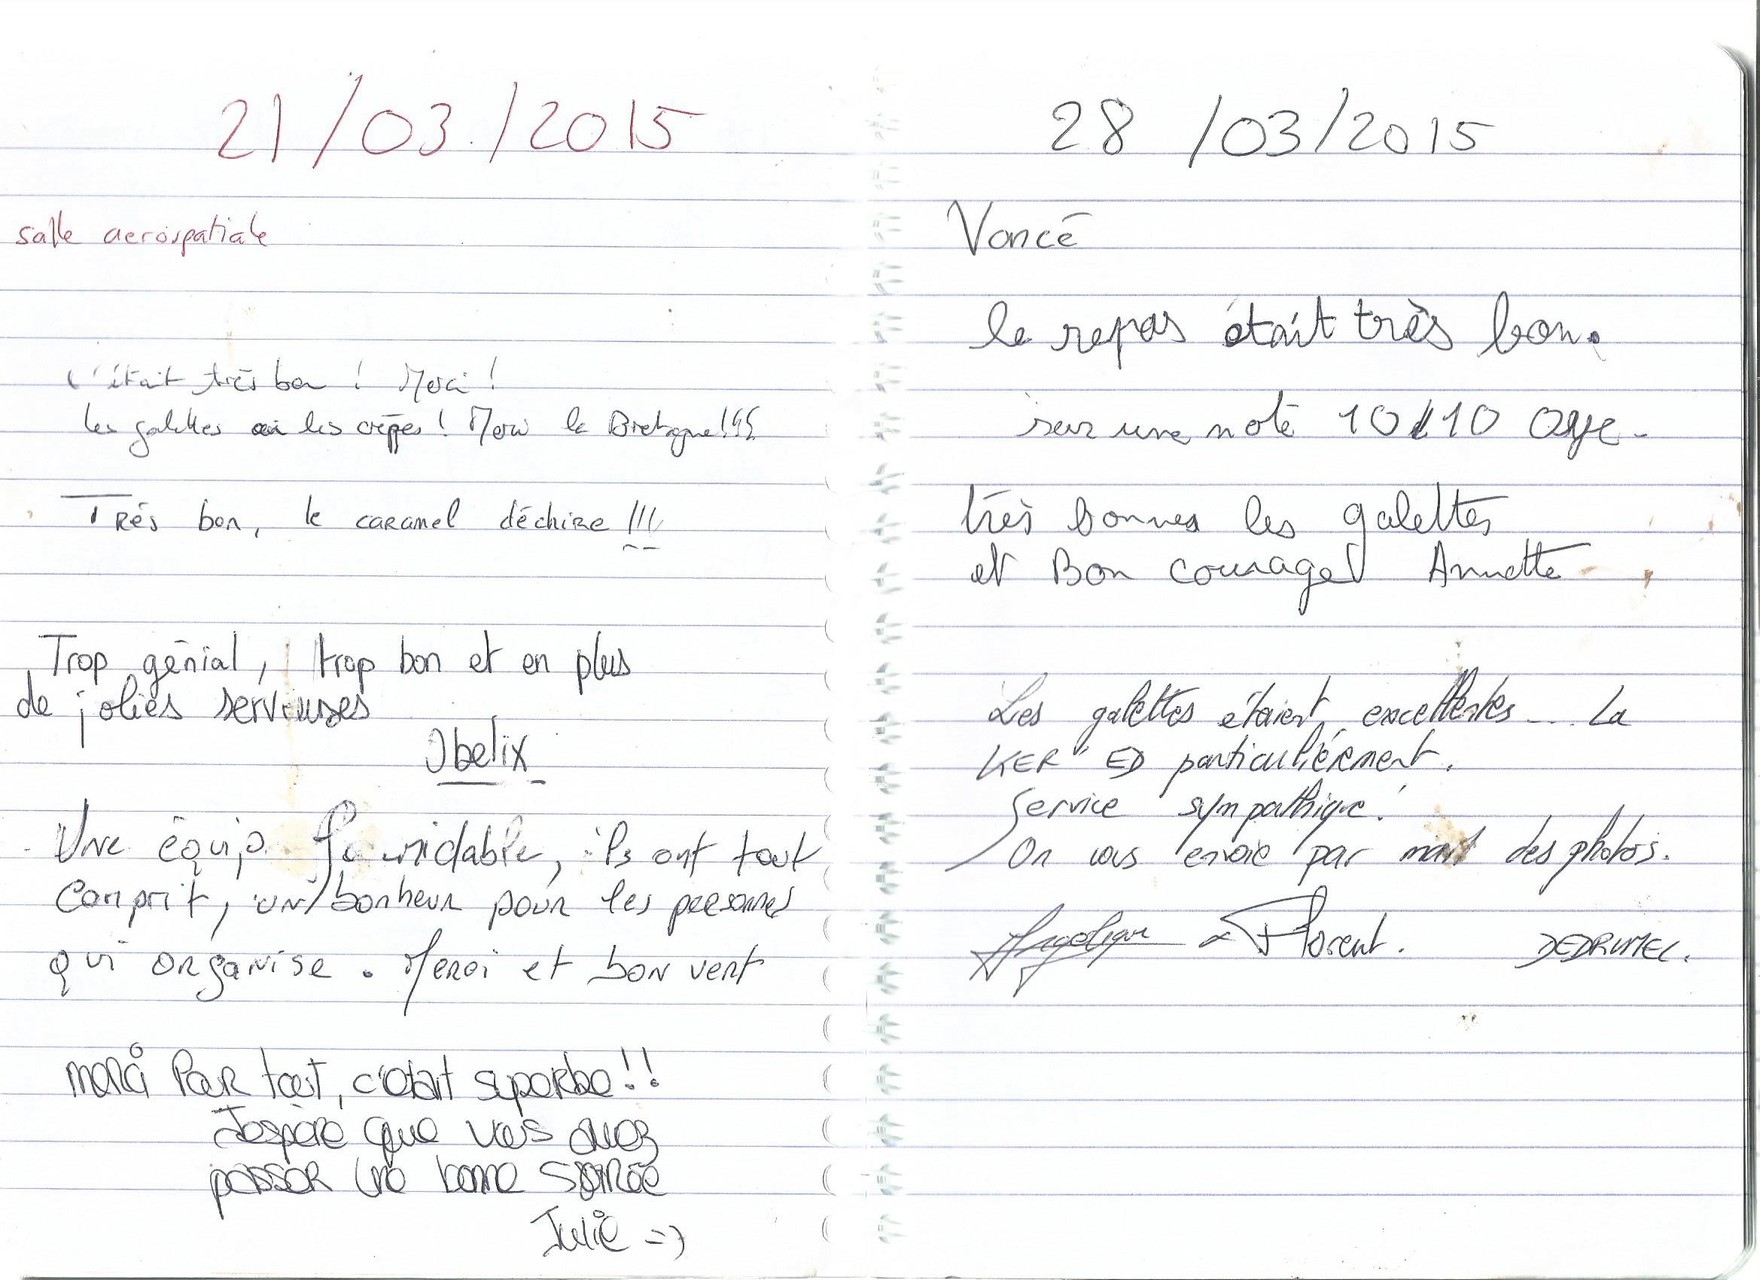 21/03/2015
salle aerospatiale
C'était très bon ! Merci !
Les galettes les crêpes ! Merci la Bretagne!!!!
Très bon, le caramel déchire !!!
Trop génial, trop bon et en plus
de jolies serveuses
Obelix
Une équip formidable, ils ont tout
comprit, un bonheur pour les personnes
qui organise. Merci et bon vent
merci Pour tout, c'etait superbe!!
J'espère que vous avez
passer une bonne soirée
Julie =)
28/03/2015
Voncé
le repas était très bon.
sur une note 10/10
très bonnes les galettes
et Bon courage! Annette
Les galettes étaient excellentes... La
KER ED particulièrement.
Service sympathique!
On vous envoie par mail des photos.
Angélique & Florent.